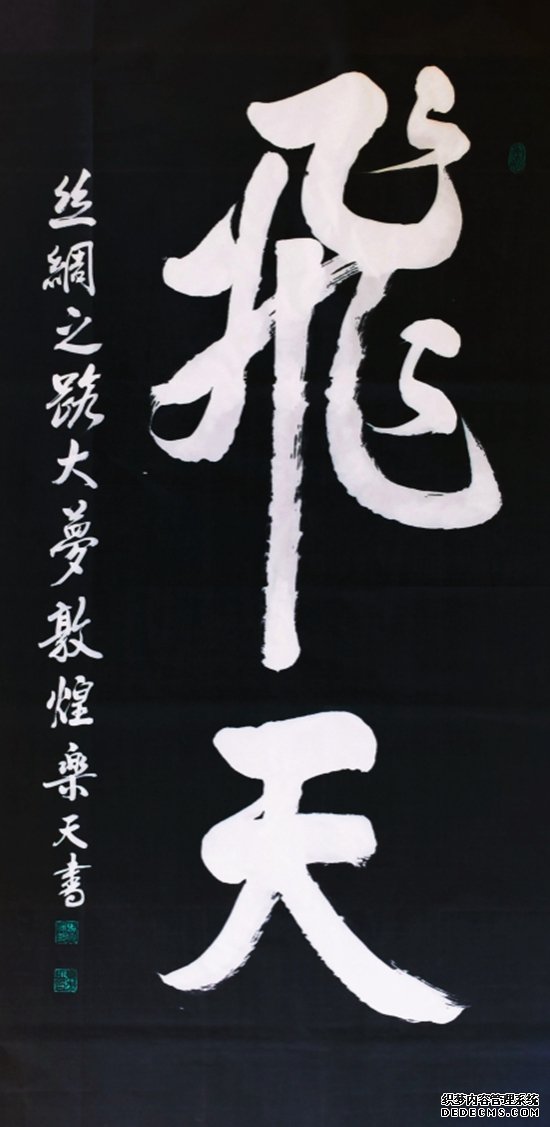 飛天
丝綢之路大夢敦煌樂天書
织梦内容管理系统
DEDECMS.COM